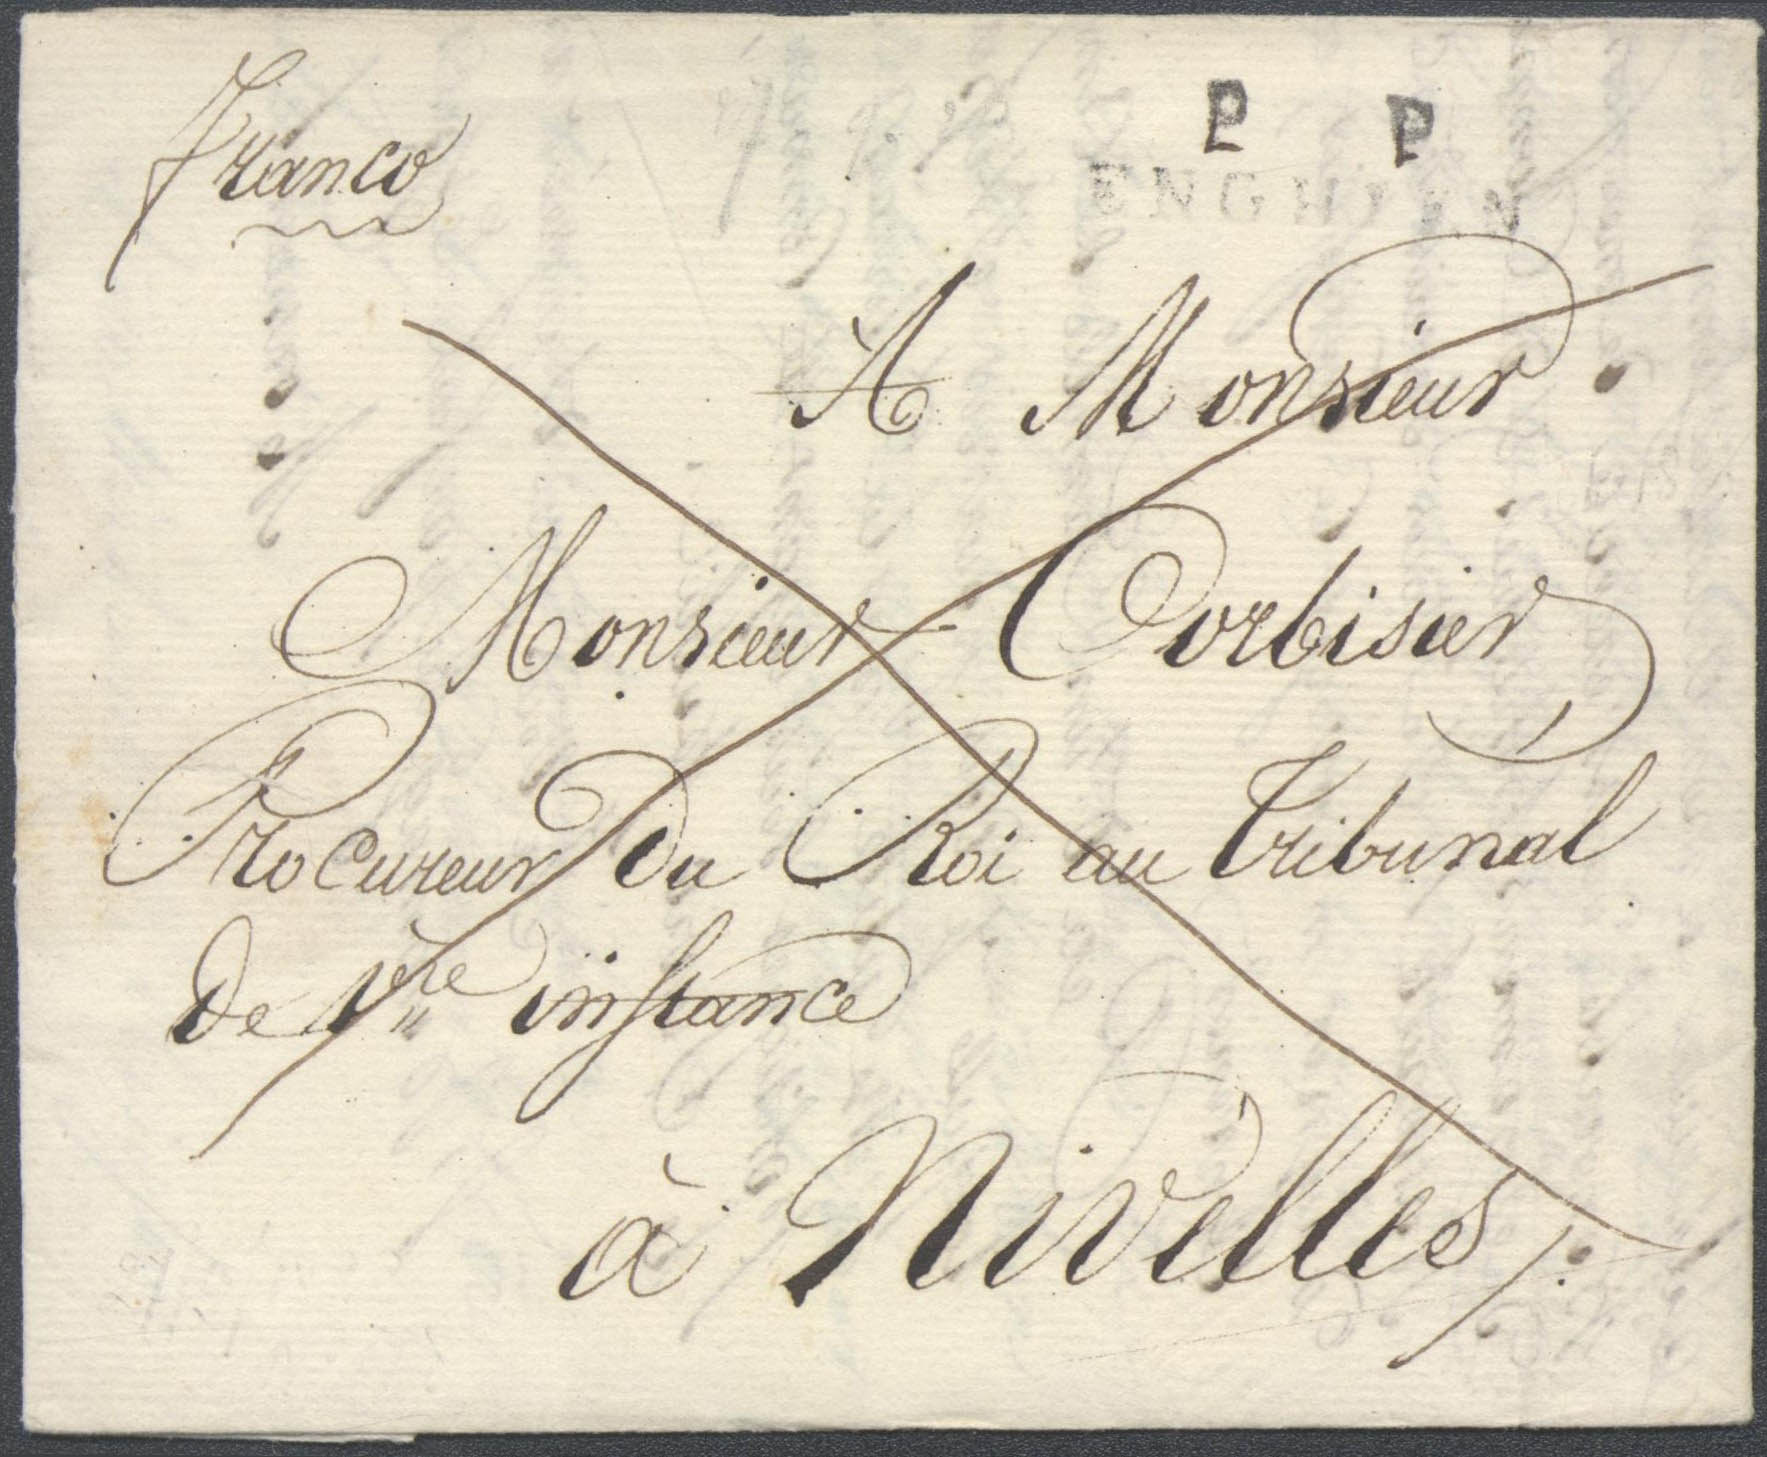 Franco
P P
ENGHIEN
A Monsieur
Monsieur Corbisier
Procureur Du Roi au Tribunal
De 1ere instance
à Nivelles